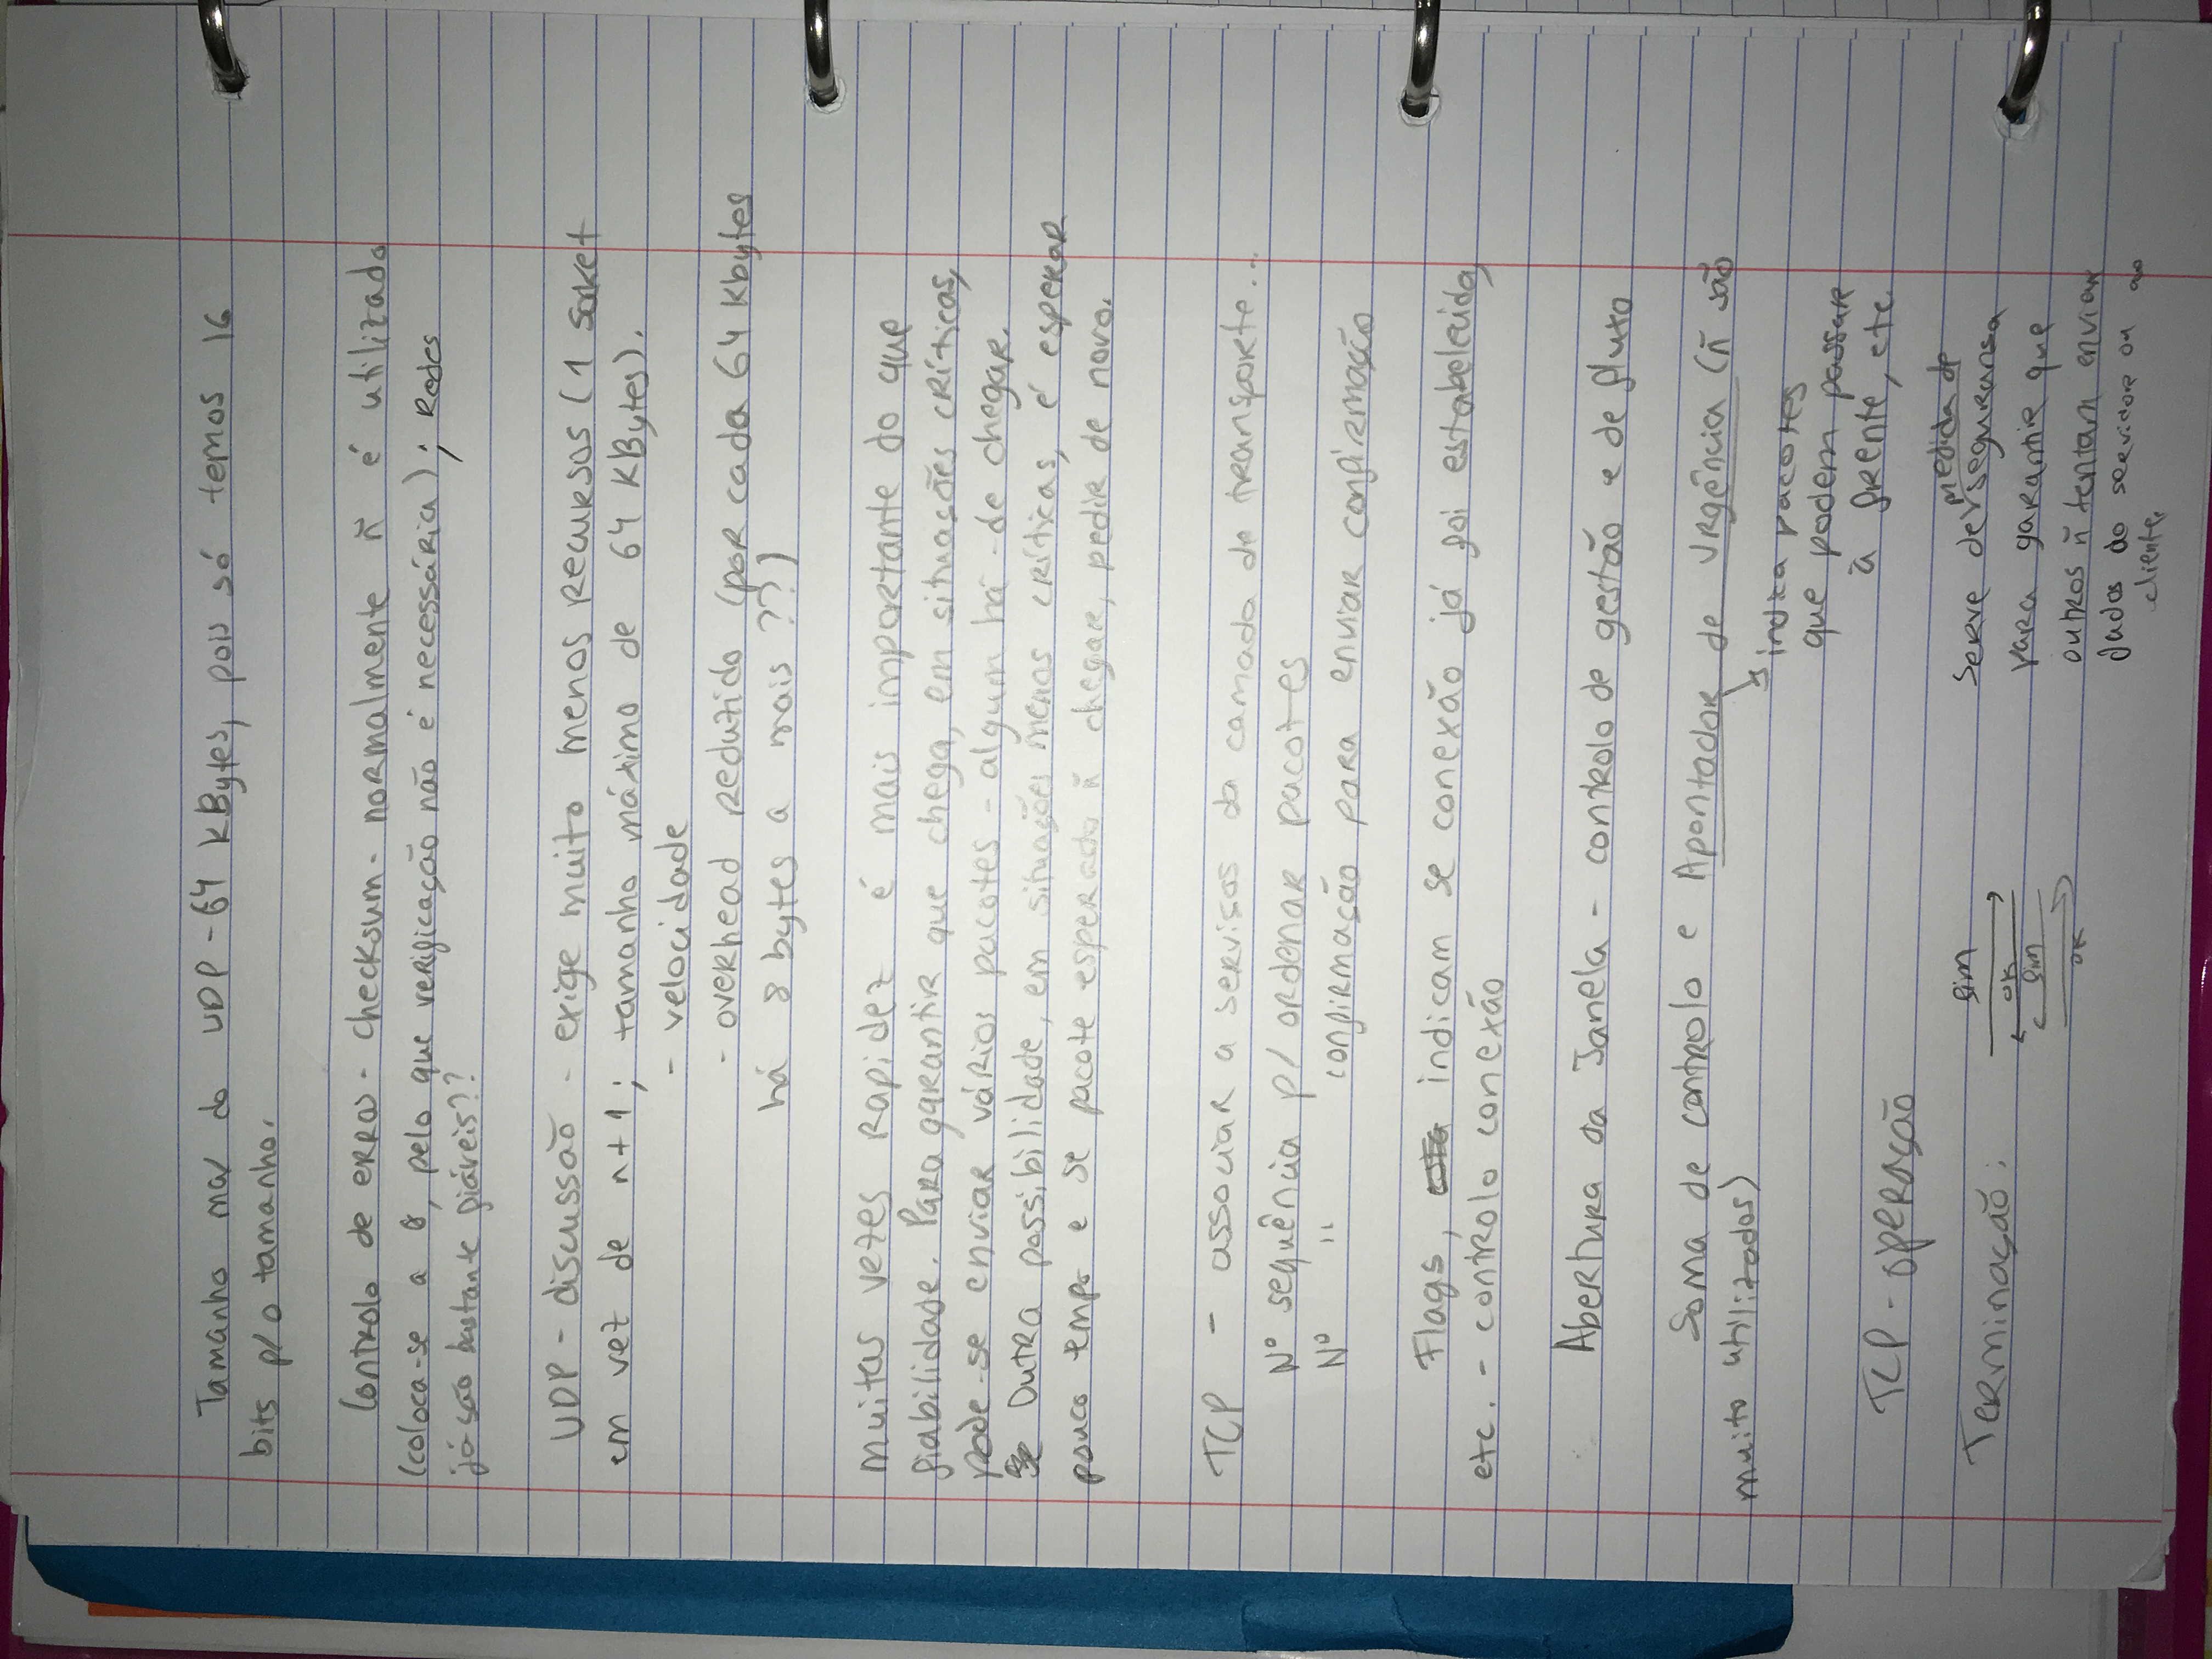 Tamanho max do UDP - 64 kBytes, pois só temos 16
bits p/ o tamanho.
Controlo de erros - checksum - normalmente ñ é utilizado
(coloca-se a 0, pelo que verificação não é necessária); Redes
já são bastante fiáveis??
UDP - discussão - exige muito menos recursos (1 socket
em vez de n+1; tamanho máximo de 64 KBytes).
- velocidade
- overhead reduzido (por cada 64 kbytes
há 8 bytes a mais ??)
Muitas vezes rapidez é mais importante do que
fiabilidade. Para garantir que chega, em situações críticas,
pode-se enviar vários pacotes - algum há-de chegar.
Outra possibilidade, em situações menos críticas, é esperar
pouco tempo e se pacote esperado ñ chegar, pedir de novo.
TCP - associar a serviços da camada de transporte...
Nº sequência p/ ordenar pacotes
Nº " confirmação para enviar confirmação
Flags, indicam se conexão já foi estabelecida,
etc. - controlo conexão
Abertura da Janela - controlo de gestão e de fluxo
Soma de controlo e Apontador de Urgência (ñ são
muito utilizados)
indica pacotes
que podem passar
à frente, etc
TCP - operação
Terminação:
fim
ok
fim
ok
Serve de medida de segurança
para garantir que
outros ñ tentam enviar
dados do servidor ou ao
cliente.